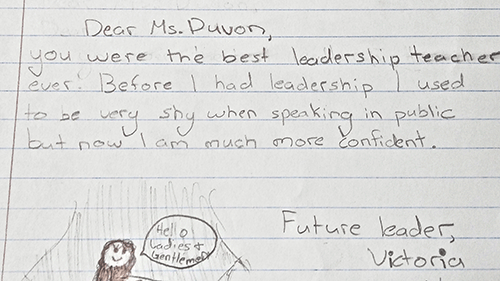 Dear Ms. Duvon,
you were the best leadership teacher
ever! Before I had leadership I used
to be very shy when speaking in public
but now I am much more confident.
Hello
Ladies &
Gentlemen
Future leader,
Victoria